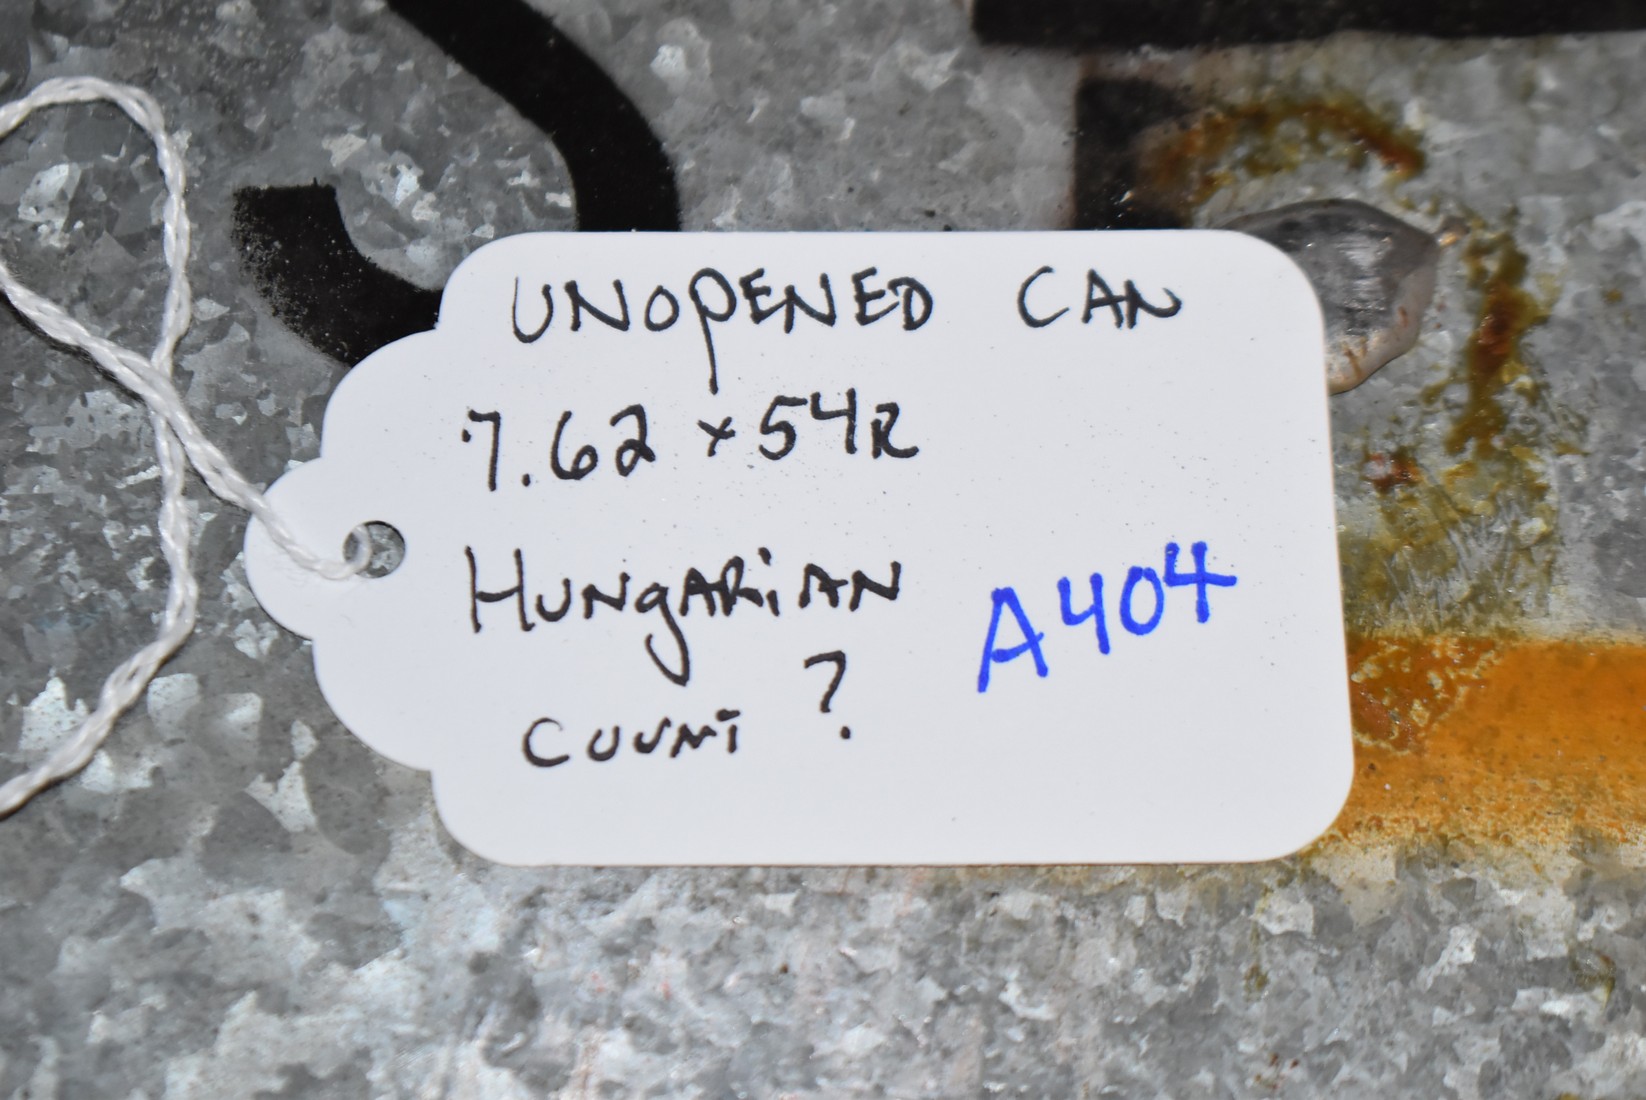 UNOPENED CAN
7.62 x 54R
HUNgARiAN
A404
COUNT ?